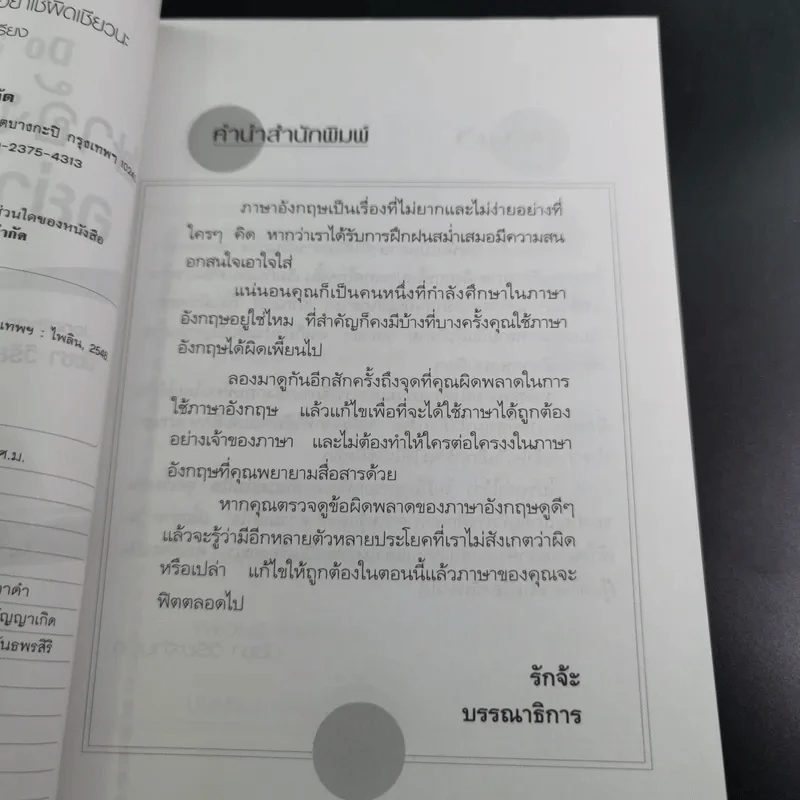 อย่าใช้ผิดเชียวนะ
เรียง
กัด
ตบางกะปิ กรุงเทพฯ 10240
0-2375-4313
ส่วนใดของหนังสือ
จำกัด
เทพฯ : ไพลิน, 2548
ศ.ม.
าดำ
ัญญาเกิด
ันธพรสิริ
คำนำสำนักพิมพ์
ภาษาอังกฤษเป็นเรื่องที่ไม่ยากและไม่ง่ายอย่างที่
ใครๆ คิด หากว่าเราได้รับการฝึกฝนสม่ำเสมอมีความสน
อกสนใจเอาใจใส่
แน่นอนคุณก็เป็นคนหนึ่งที่กำลังศึกษาในภาษา
อังกฤษอยู่ใช่ไหม ที่สำคัญก็คงมีบ้างที่บางครั้งคุณใช้ภาษา
อังกฤษได้ผิดเพี้ยนไป
ลองมาดูกันอีกสักครั้งถึงจุดที่คุณผิดพลาดในการ
ใช้ภาษาอังกฤษ แล้วแก้ไขเพื่อที่จะได้ใช้ภาษาได้ถูกต้อง
อย่างเจ้าของภาษา และไม่ต้องทำให้ใครต่อใครงงในภาษา
อังกฤษที่คุณพยายามสื่อสารด้วย
หากคุณตรวจดูข้อผิดพลาดของภาษาอังกฤษดูดีๆ
แล้วจะรู้ว่ามีอีกหลายตัวหลายประโยคที่เราไม่สังเกตว่าผิด
หรือเปล่า แก้ไขให้ถูกต้องในตอนนี้แล้วภาษาของคุณจะ
ฟิตตลอดไป
รักจ้ะ
บรรณาธิการ